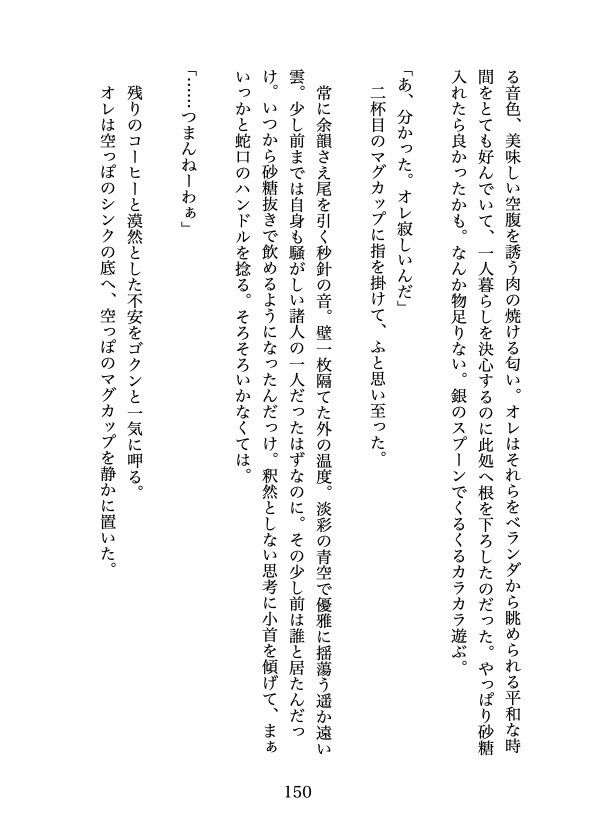 る音色、美味しい空腹を誘う肉の焼ける匂い。オレはそれらをベランダから眺められる平和な時
間をとても好んでいて、一人暮らしを決心するのに此処へ根を下ろしたのだった。やっぱり砂糖
入れたら良かったかも。なんか物足りない。銀のスプーンでくるくるカラカラ遊ぶ。
「あ、分かった。オレ寂しいんだ」
二杯目のマグカップに指を掛けて、ふと思い至った。
常に余韻さえ尾を引く秒針の音。壁一枚隔てた外の温度。淡彩の青空で優雅に揺蕩う遥か遠い
雲。少し前までは自身も騒がしい諸人の一人だったはずなのに。その少し前は誰と居たんだっ
け。いつから砂糖抜きで飲めるようになったんだっけ。釈然としない思考に小首を傾げて、まぁ
いっかと蛇口のハンドルを捻る。そろそろいかなくては。
「……つまんねーわぁ」
残りのコーヒーと漠然とした不安をゴクンと一気に呷る。
オレは空っぽのシンクの底へ、空っぽのマグカップを静かに置いた。
150